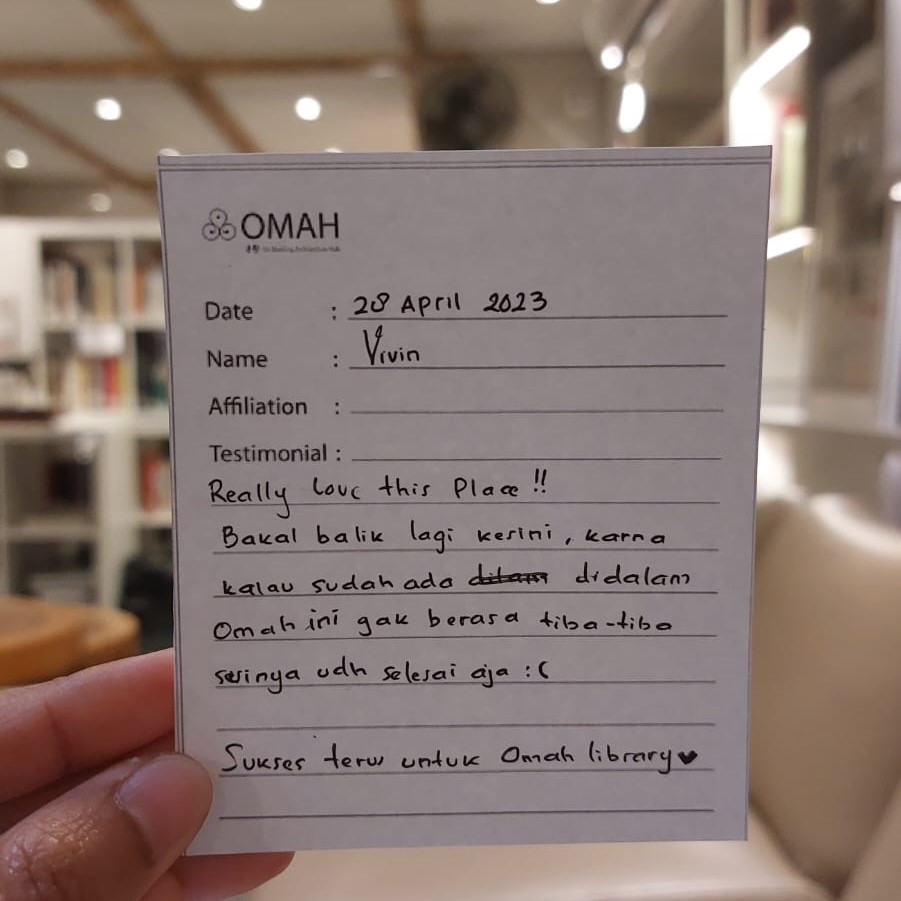 OMAH
Date : 28 April 2023
Name : Vivin
Affiliation :
Testimonial :
Really Love this Place !!
Bakal balik lagi kesini, karna
kalau sudah ada didalam
Omah ini gak berasa tiba-tiba
sesinya udh selesai aja :(
Sukses terus untuk Omah library ♥